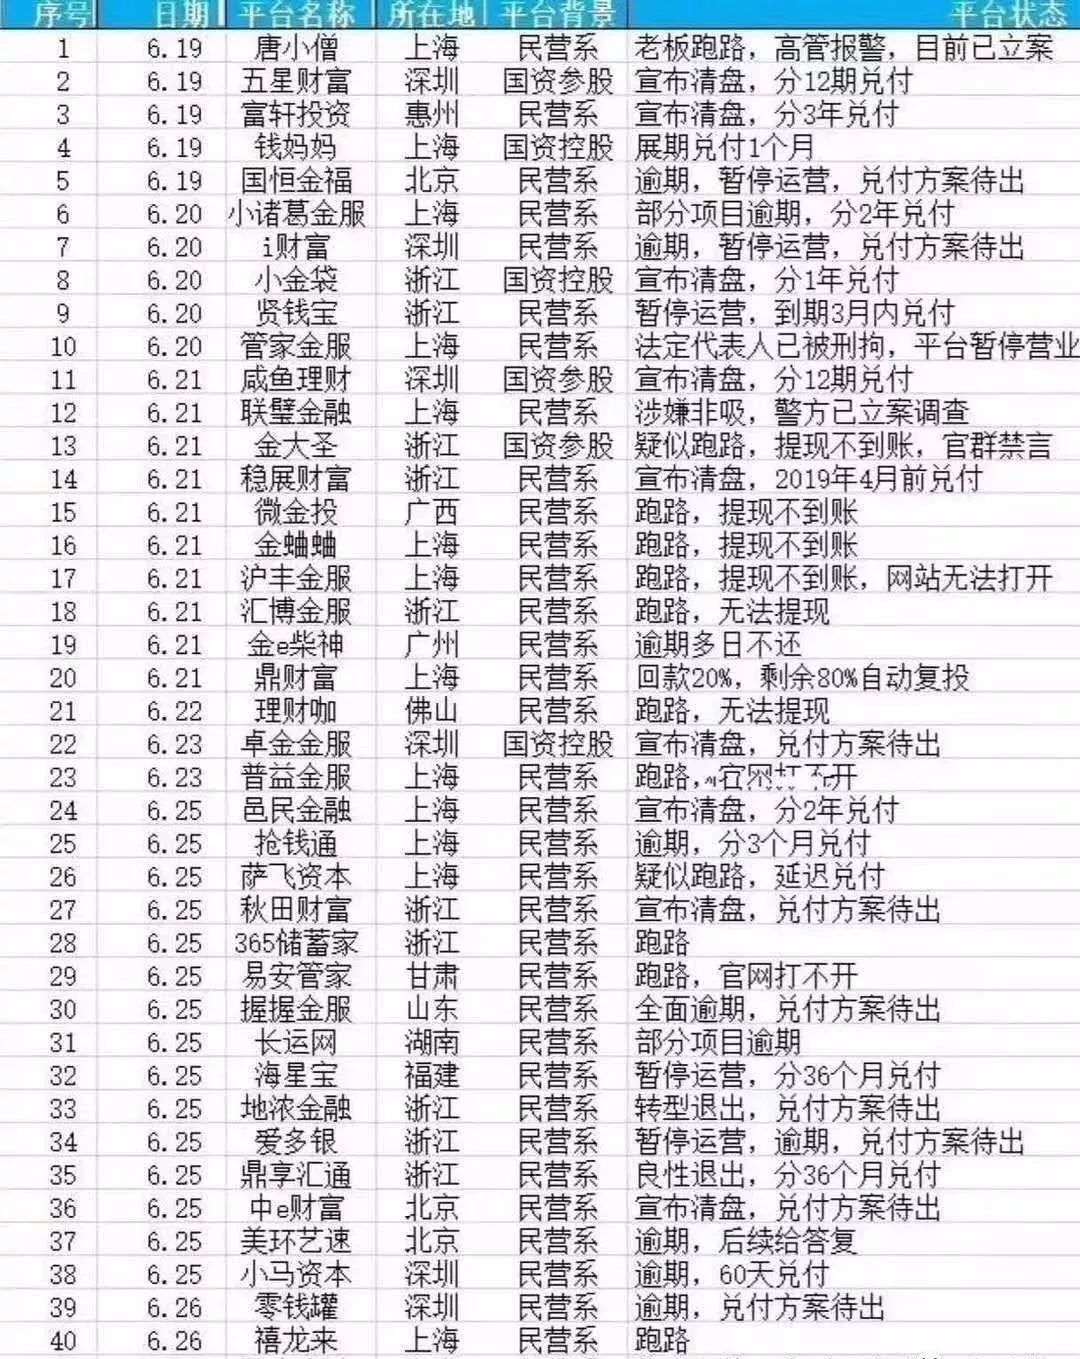 序号 日期 平台名称 所在地 平台背景 平台状态
1 6.19 唐小僧 上海 民营系 老板跑路，高管报警，目前已立案
2 6.19 五星财富 深圳 国资参股 宣布清盘，分12期兑付
3 6.19 富轩投资 惠州 民营系 宣布清盘，分3年兑付
4 6.19 钱妈妈 上海 国资控股 展期兑付1个月
5 6.19 国恒金福 北京 民营系 逾期，暂停运营，兑付方案待出
6 6.20 小诸葛金服 上海 民营系 部分项目逾期，分2年兑付
7 6.20 i财富 深圳 民营系 逾期，暂停运营，兑付方案待出
8 6.20 小金袋 浙江 国资控股 宣布清盘，分1年兑付
9 6.20 贤钱宝 浙江 民营系 暂停运营，到期3月内兑付
10 6.20 管家金服 上海 民营系 法定代表人已被刑拘，平台暂停营业
11 6.21 咸鱼理财 深圳 国资参股 宣布清盘，分12期兑付
12 6.21 联璧金融 上海 民营系 涉嫌非吸，警方已立案调查
13 6.21 金大圣 浙江 国资参股 疑似跑路，提现不到账，官群禁言
14 6.21 稳展财富 浙江 民营系 宣布清盘，2019年4月前兑付
15 6.21 微金投 广西 民营系 跑路，提现不到账
16 6.21 金蛐蛐 上海 民营系 跑路，提现不到账
17 6.21 沪丰金服 上海 民营系 跑路，提现不到账，网站无法打开
18 6.21 汇博金服 浙江 民营系 跑路，无法提现
19 6.21 金e柴神 广州 民营系 逾期多日不还
20 6.21 鼎财富 上海 民营系 回款20%，剩余80%自动复投
21 6.22 理财咖 佛山 民营系 跑路，无法提现
22 6.23 卓金金服 深圳 国资控股 宣布清盘，兑付方案待出
23 6.23 普益金服 上海 民营系 跑路，官网打不开
24 6.25 邑民金融 上海 民营系 宣布清盘，分2年兑付
25 6.25 抢钱通 上海 民营系 逾期，分3个月兑付
26 6.25 萨飞资本 上海 民营系 疑似跑路，延迟兑付
27 6.25 秋田财富 浙江 民营系 宣布清盘，兑付方案待出
28 6.25 365储蓄家 浙江 民营系 跑路
29 6.25 易安管家 甘肃 民营系 跑路，官网打不开
30 6.25 握握金服 山东 民营系 全面逾期，兑付方案待出
31 6.25 长运网 湖南 民营系 部分项目逾期
32 6.25 海星宝 福建 民营系 暂停运营，分36个月兑付
33 6.25 地浓金融 浙江 民营系 转型退出，兑付方案待出
34 6.25 爱多银 浙江 民营系 暂停运营，逾期，兑付方案待出
35 6.25 鼎享汇通 浙江 民营系 良性退出，分36个月兑付
36 6.25 中e财富 北京 民营系 宣布清盘，兑付方案待出
37 6.25 美环艺速 北京 民营系 逾期，后续给答复
38 6.25 小马资本 深圳 民营系 逾期，60天兑付
39 6.26 零钱罐 深圳 民营系 逾期，兑付方案待出
40 6.26 禧龙来 上海 民营系 跑路